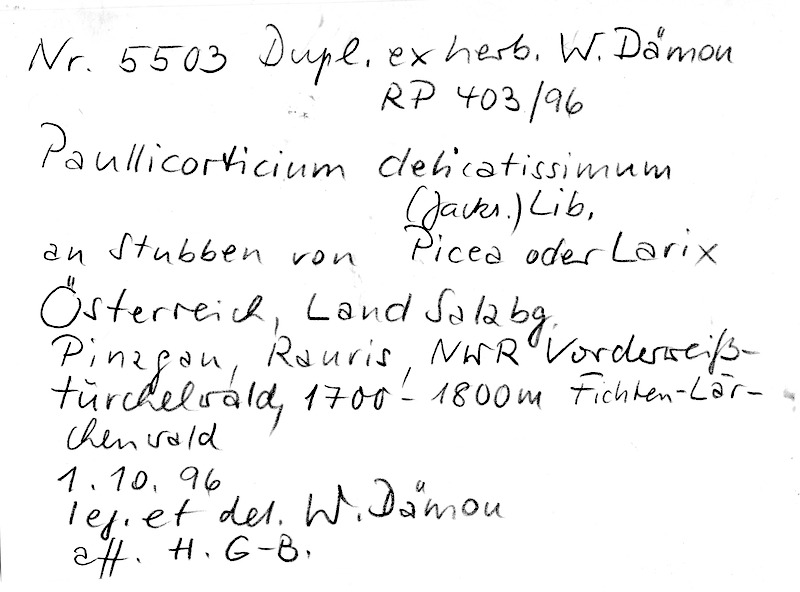 Nr. 5503 Dupl. ex herb. W. Dämon
RP 403/96
Paullicorticium delicatissimum
(Jacks.) Lib.
an Stubben von Picea oder Larix
Österreich, Land Salzbg.
Pinzgau, Rauris, NWR Vorderweiß-
türchelwald, 1700-1800m Fichten-Lär-
chenwald
1.10.96
leg. et det. W. Dämon
aff. H. G-B.